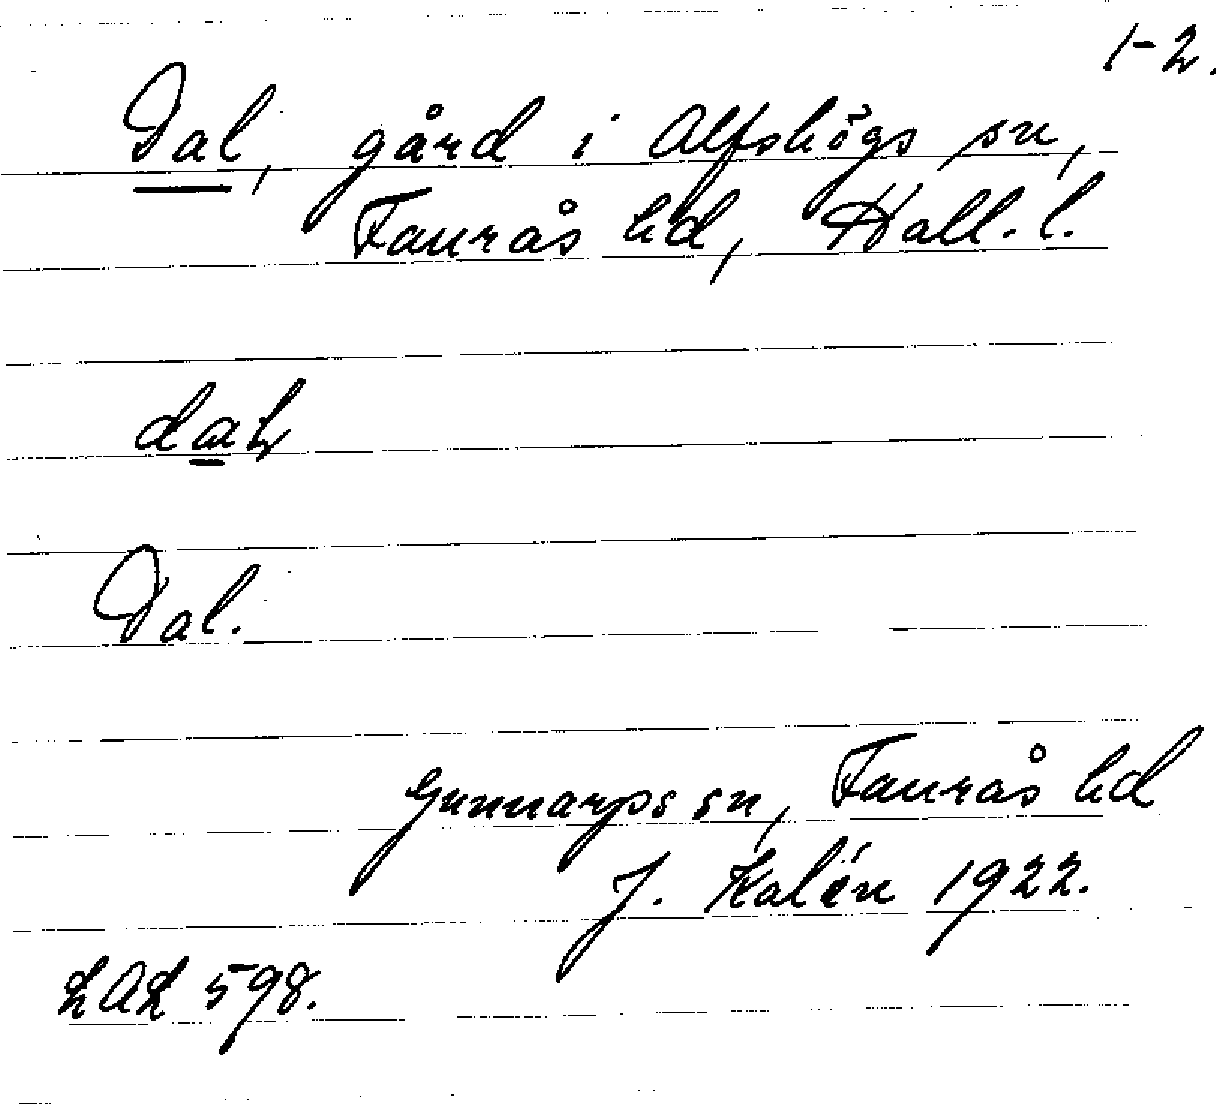 1-2.
Dal, gård i Alfshögs sn,
Faurås hd, Hall. l.
dal
Dal.
Gunnarps sn, Faurås hd
J. Kalén 1922.
LAL 598.